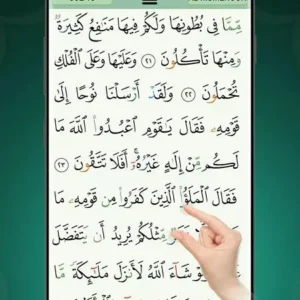 مِّمَّا فِي بُطُونِهَا وَلَكُمْ فِيهَا مَنَافِعُ كَثِيرَةٌ
وَمِنْهَا تَأْكُلُونَ ٢١ وَعَلَيْهَا وَعَلَى الْفُلْكِ
تُحْمَلُونَ ٢٢ وَلَقَدْ أَرْسَلْنَا نُوحًا إِلَىٰ
قَوْمِهِ فَقَالَ يَـٰقَوْمِ اعْبُدُوا اللَّهَ مَا
لَكُم مِّنْ إِلَـٰهٍ غَيْرُهُ أَفَلَا تَتَّقُونَ ٢٣
فَقَالَ الْمَلَؤُا الَّذِينَ كَفَرُوا مِن قَوْمِهِ مَا
مِّثْلُكُمْ يُرِيدُ أَن يَتَفَضَّلَ
شَآءَ اللَّهُ لَأَنزَلَ مَلَـٰٓئِكَةً مَّا